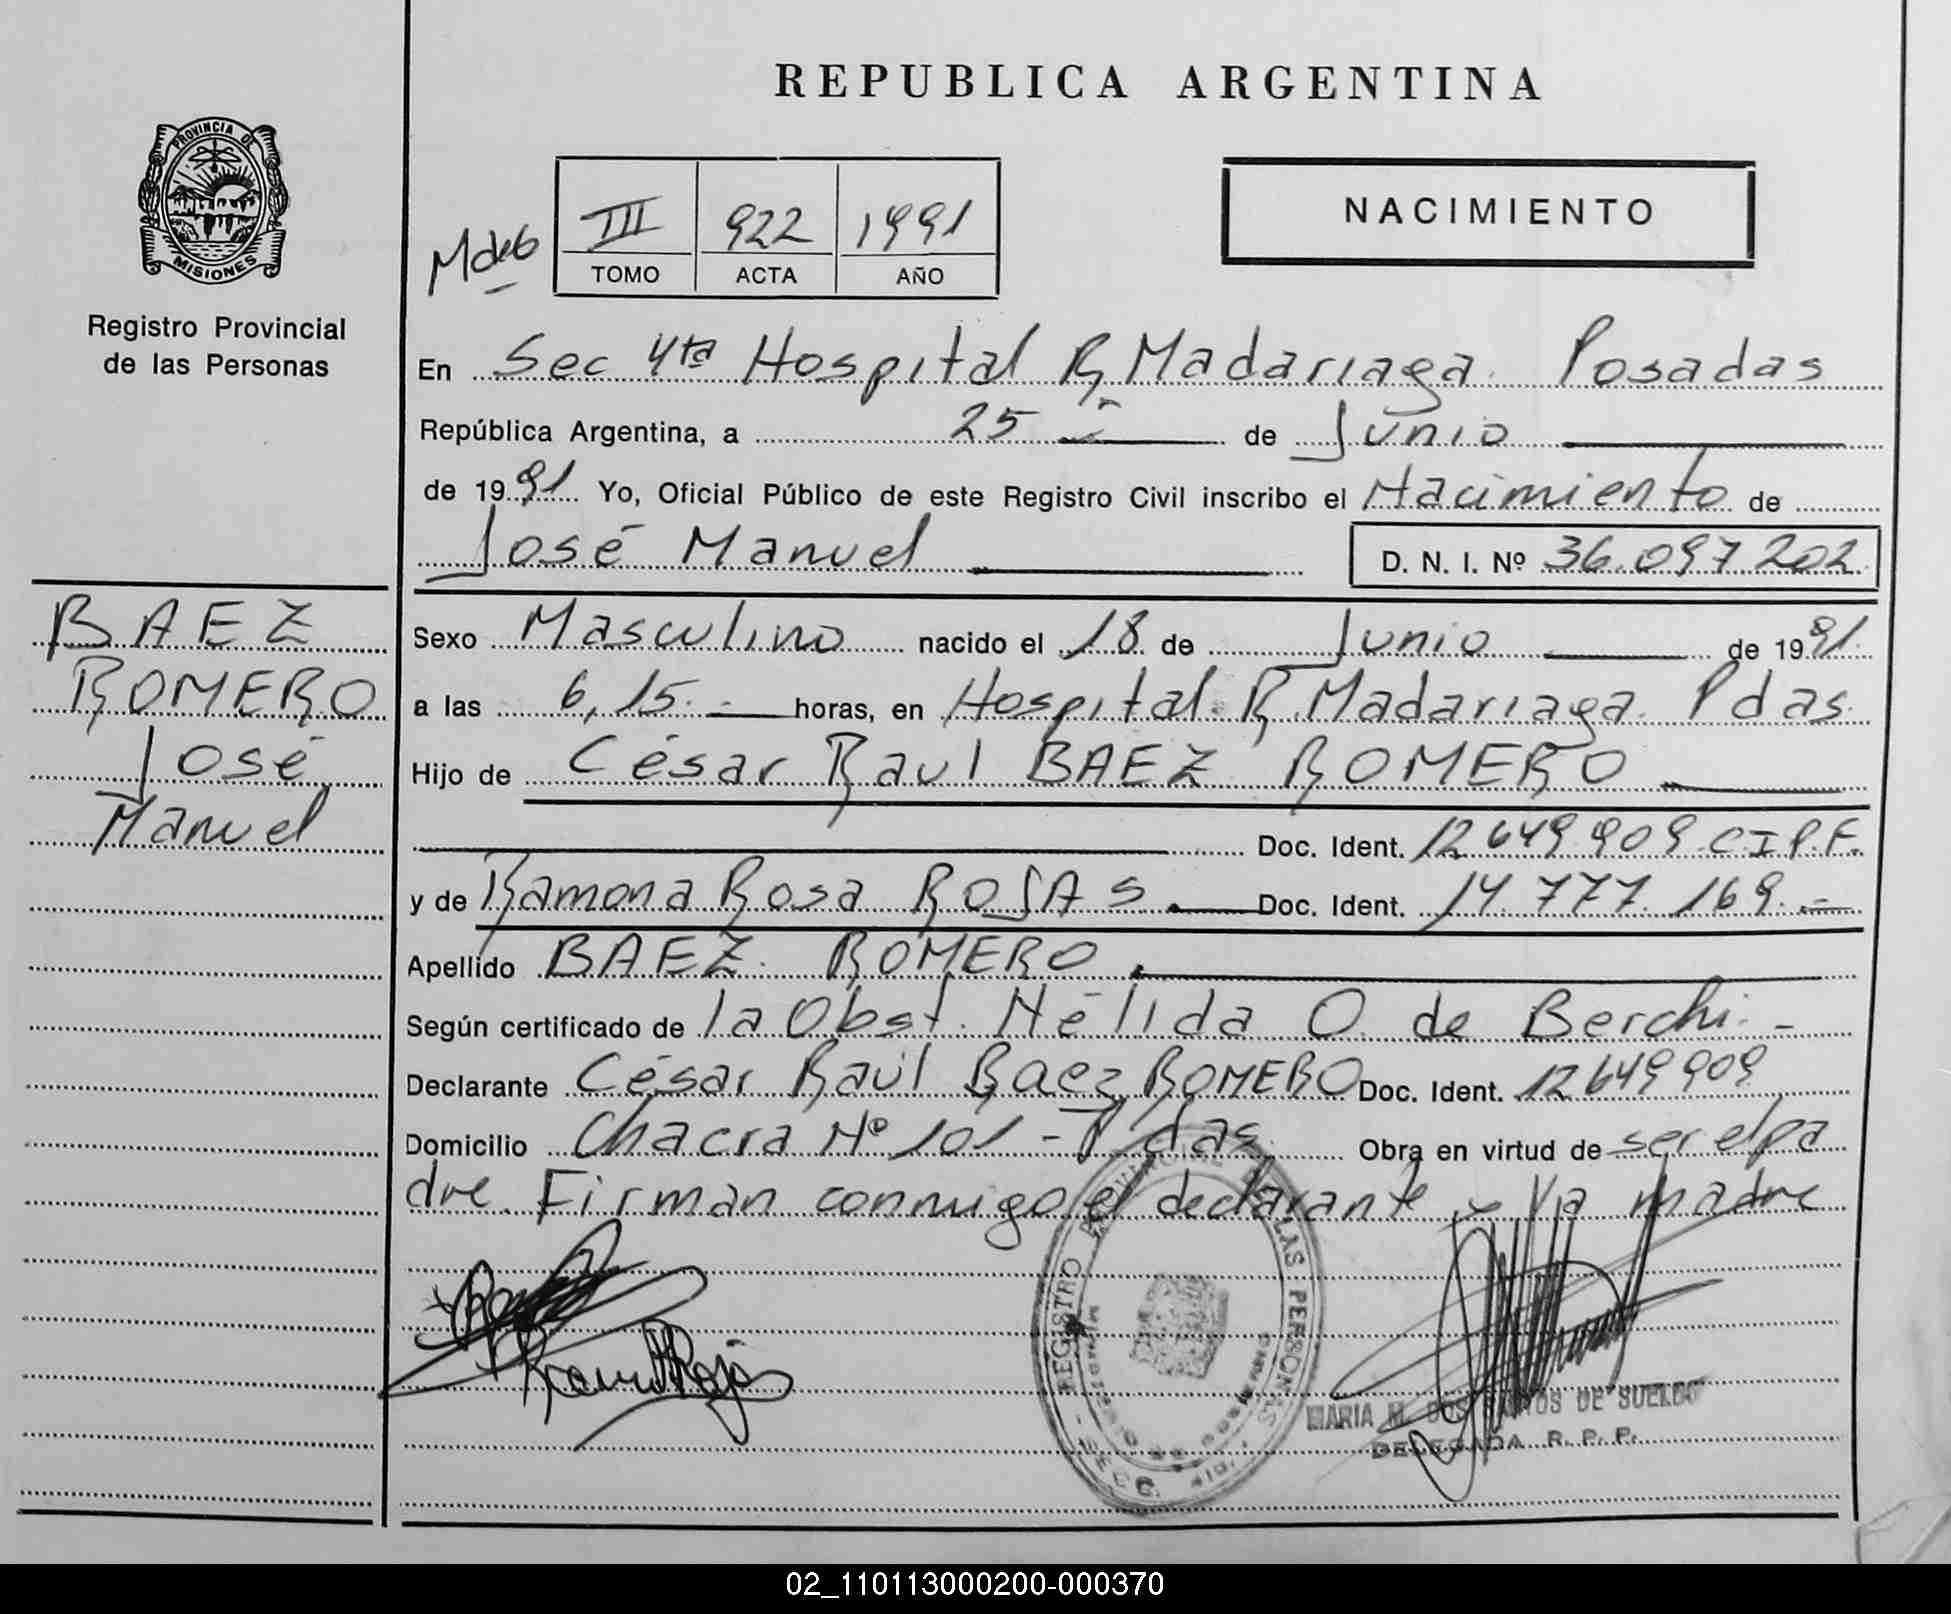 REPUBLICA ARGENTINA
PROVINCIA DE
MISIONES
Registro Provincial
de las Personas
NACIMIENTO
III 922 1991
TOMO ACTA AÑO
En Sec 4ta Hospital R. Madariaga. Posadas
República Argentina, a 25 de Junio
de 1991 Yo, Oficial Público de este Registro Civil inscribo el Nacimiento de
José Manuel D. N. I. Nº 36.097.202
BAEZ
ROMERO
José
Manuel
Sexo Masculino nacido el 18 de Junio de 1991.
a las 6,15.- horas, en Hospital R. Madariaga. Pdas.
Hijo de César Raul BAEZ ROMERO
Doc. Ident. 12.649.909.C.I.P.F.
y de Ramona Rosa ROJAS. Doc. Ident. 14.777.169.-
Apellido BAEZ ROMERO.
Según certificado de la Obst. Nélida O. de Berchi.-
Declarante César Raúl Baez ROMERO Doc. Ident. 12649909
Domicilio Chacra Nº 101 - Pdas. Obra en virtud de ser el pa
dre. Firman conmigo el declarante y la madre
REGISTRO PROVINCIAL DE LAS PERSONAS
MARIA M. DOS SANTOS DE SUELDO
DELEGADA R. P. P.
02_110113000200-000370